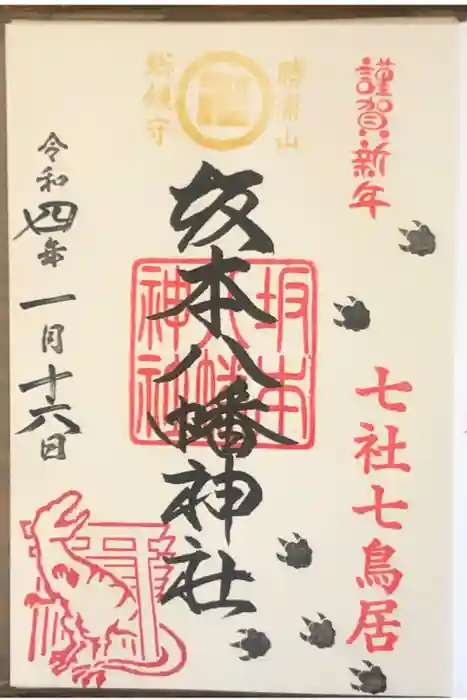 謹賀新年
七社七鳥居
勝浦山
総鎮守
坂本八幡神社
坂本
八幡
神社
令和四年一月十六日